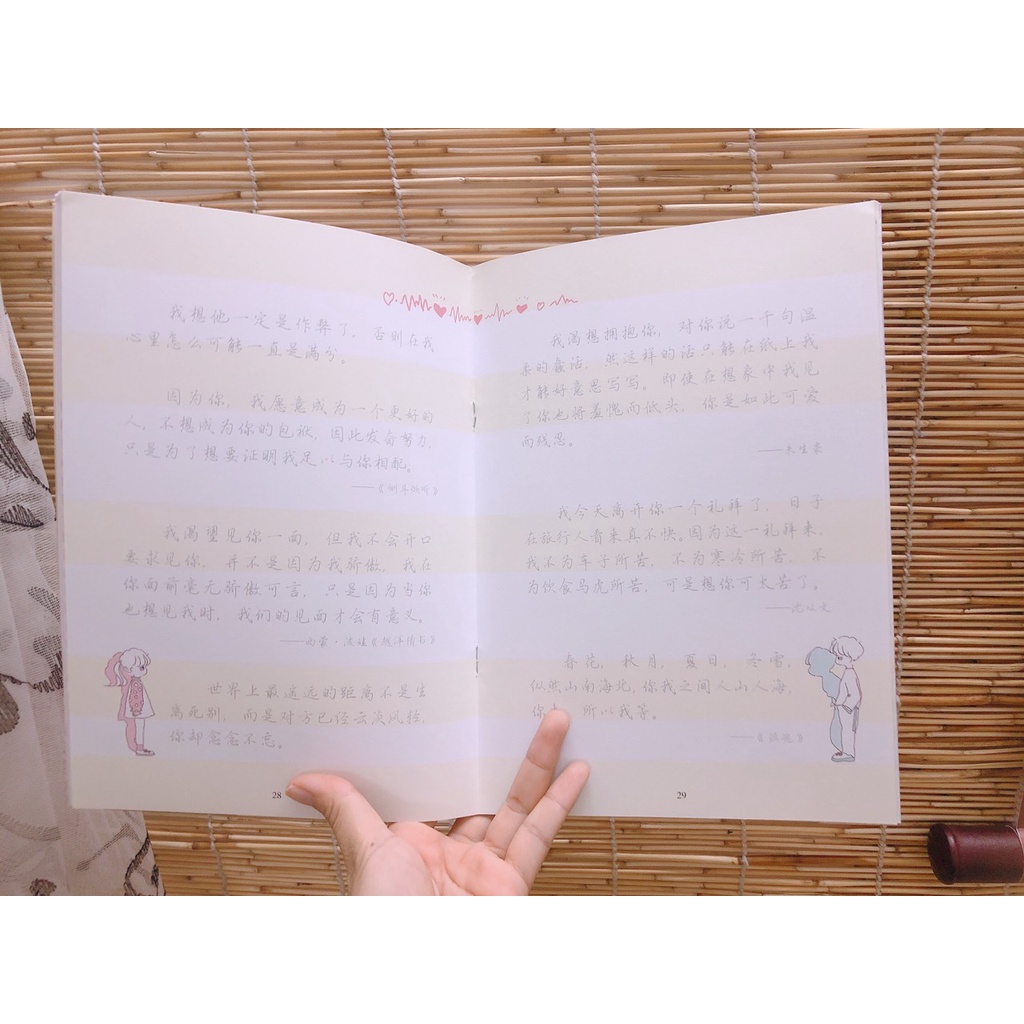 我想他一定是作弊了，否则在我
心里怎么可能一直是满分。
因为你，我愿意成为一个更好的
人，不想成为你的包袱，因此发奋努力，
只是为了想要证明我足以与你相配。
——《侧耳倾听》
我渴望见你一面，但我不会开口
要求见你，并不是因为我骄傲，我在
你面前毫无骄傲可言，只是因为当你
也想见我时，我们的见面才会有意义。
——西蒙·波娃《越洋情书》
世界上最遥远的距离不是生
离死别，而是对方已经云淡风轻，
你却念念不忘。
28
我渴想拥抱你，对你说一千句温
柔的蠢话，然这样的话只能在纸上我
才能好意思写写。即使在想象中我见
了你也将羞愧而低头，你是如此可爱
而残忍。
——朱生豪
我今天离开你一个礼拜了，日子
在旅行人看来真不快。因为这一礼拜来，
我不为车子所苦，不为寒冷所苦，不
为饮食马虎所苦，可是想你可太苦了。
——沈从文
春花，秋月，夏日，冬雪，
似熊山南海北，你我之间人山人海，
你 所以我等。
——《镇魂》
29